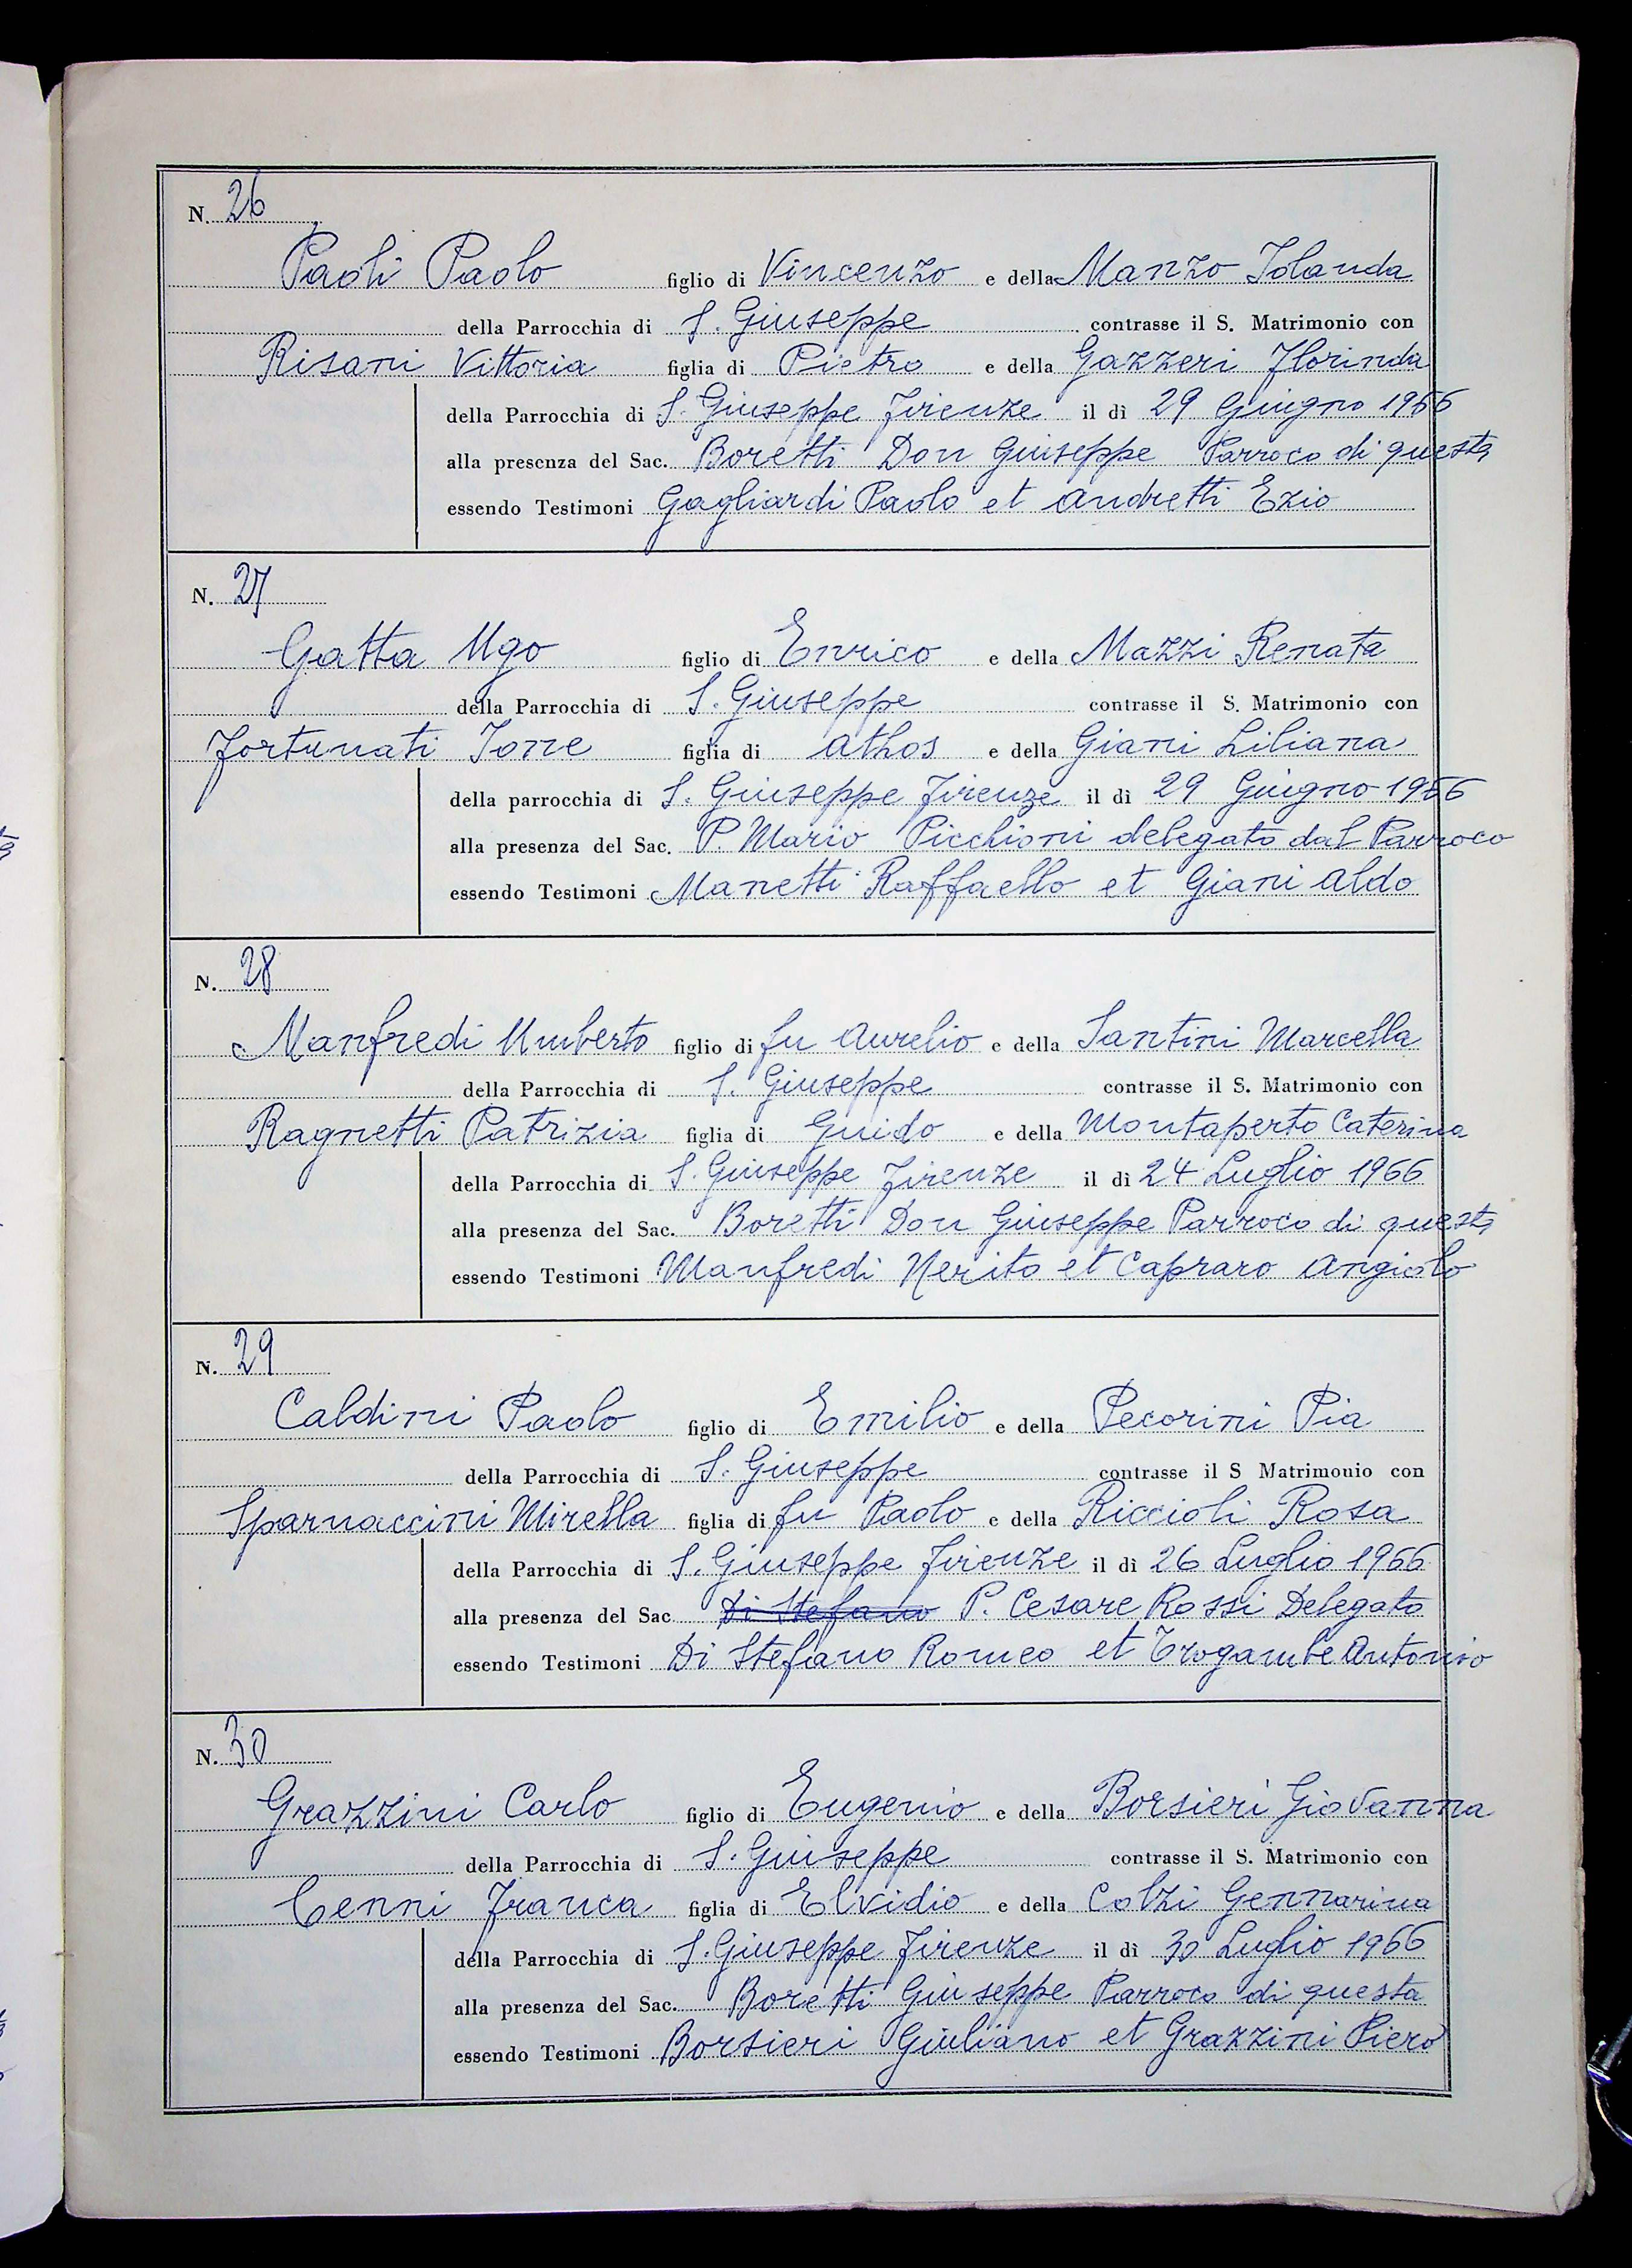 N. 26
Paoli Paolo figlio di Vincenzo e della Manzo Iolanda
della Parrocchia di S. Giuseppe contrasse il S. Matrimonio con
Risani Vittoria figlia di Pietro e della Gazzeri Florinda
della Parrocchia di S. Giuseppe Firenze il dì 29 Giugno 1966
alla presenza del Sac. Boretti Don Giuseppe Parroco di questa
essendo Testimoni Gagliardi Paolo et Andretti Ezio
N. 27
Gatta Ugo figlio di Enrico e della Mazzi Renata
della Parrocchia di S. Giuseppe contrasse il S. Matrimonio con
Fortunati Ione figlia di Athos e della Giani Liliana
della parrocchia di S. Giuseppe Firenze il dì 29 Giugno 1966
alla presenza del Sac. P. Mario Picchioni delegato dal Parroco
essendo Testimoni Manetti Raffaello et Giani Aldo
N. 28
Manfredi Umberto figlio di fu Aurelio e della Santini Marcella
della Parrocchia di S. Giuseppe contrasse il S. Matrimonio con
Ragnetti Patrizia figlia di Guido e della Montaperto Caterina
della Parrocchia di S. Giuseppe Firenze il dì 24 Luglio 1966
alla presenza del Sac. Boretti Don Giuseppe Parroco di questa
essendo Testimoni Manfredi Nerito et Capraro Angiolo
N. 29
Caldini Paolo figlio di Emilio e della Pecorini Pia
della Parrocchia di S. Giuseppe contrasse il S Matrimonio con
Sparnaccini Mirella figlia di fu Paolo e della Riccioli Rosa
della Parrocchia di S. Giuseppe Firenze il dì 26 Luglio 1966
alla presenza del Sac. Di Stefano P. Cesare Rossi Delegato
essendo Testimoni Di Stefano Romeo et Trogambe Antonio
N. 30
Grazzini Carlo figlio di Eugenio e della Borsieri Giovanna
della Parrocchia di S. Giuseppe contrasse il S. Matrimonio con
Cenni Franca figlia di Elvidio e della Colzi Gennarina
della Parrocchia di S. Giuseppe Firenze il dì 30 Luglio 1966
alla presenza del Sac. Boretti Giuseppe Parroco di questa
essendo Testimoni Borsieri Giuliano et Grazzini Piero